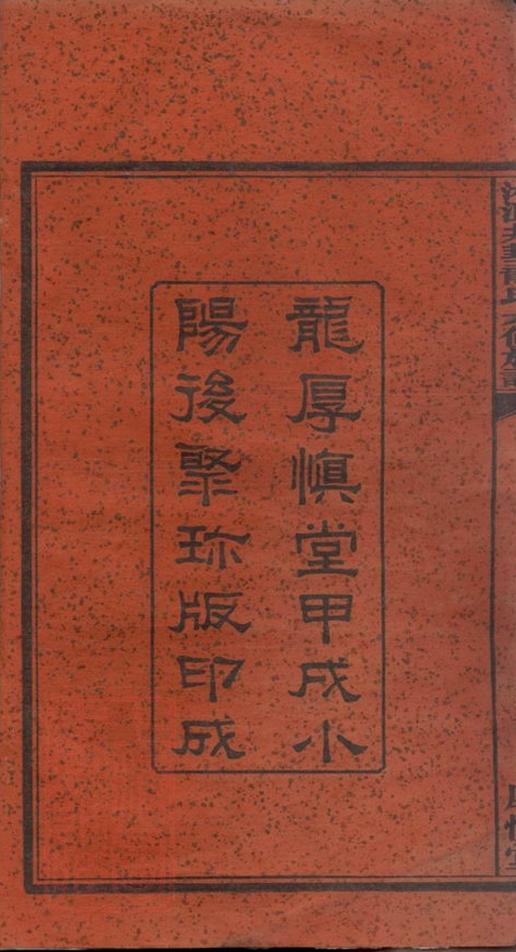 龍厚慎堂甲戌小
陽後聚珍版印成